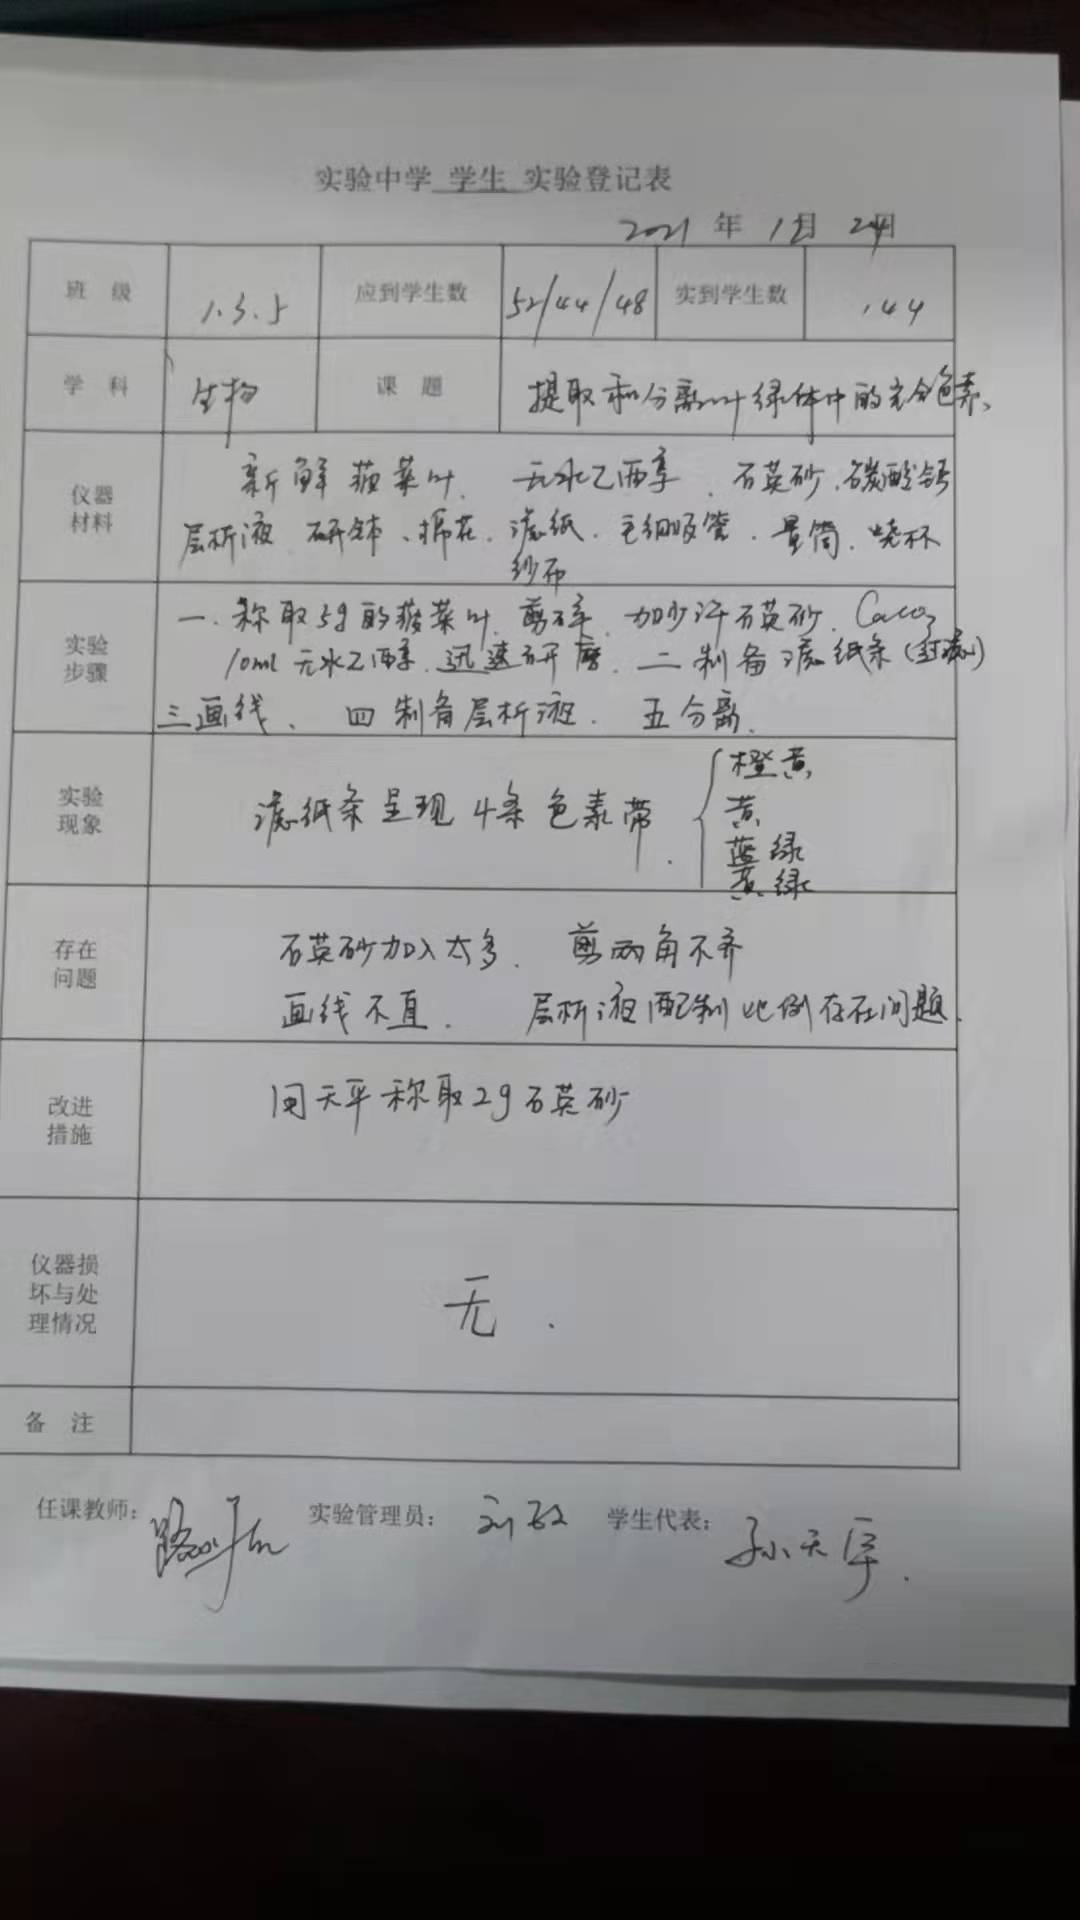 实验中学 学生 实验登记表
2021 年 1月 24日
班 级 1.3.5 应到学生数 52/44/48 实到学生数 144
学 科 生物 课 题 提取和分离叶绿体中的光合色素、
仪器材料 新鲜菠菜叶、无水乙醇、石英砂、碳酸钙
层析液 研钵、棉花、滤纸、毛细吸管、量筒、烧杯
纱布
实验步骤 一、称取5g的菠菜叶,剪碎,加少许石英砂、CaCO3
10ml 无水乙醇,迅速研磨、二制备滤纸条
三画线、四制备层析液. 五分离.
实验现象 滤纸条呈现4条色素带. 橙黄
黄
蓝绿
黄绿
存在问题 石英砂加入太多. 剪两角不齐
画线不直. 层析液配制比例存在问题.
改进措施 用天平称取2g石英砂
仪器损坏与处理情况 无.
备 注
任课教师: 实验管理员: 学生代表: 孙天宇.